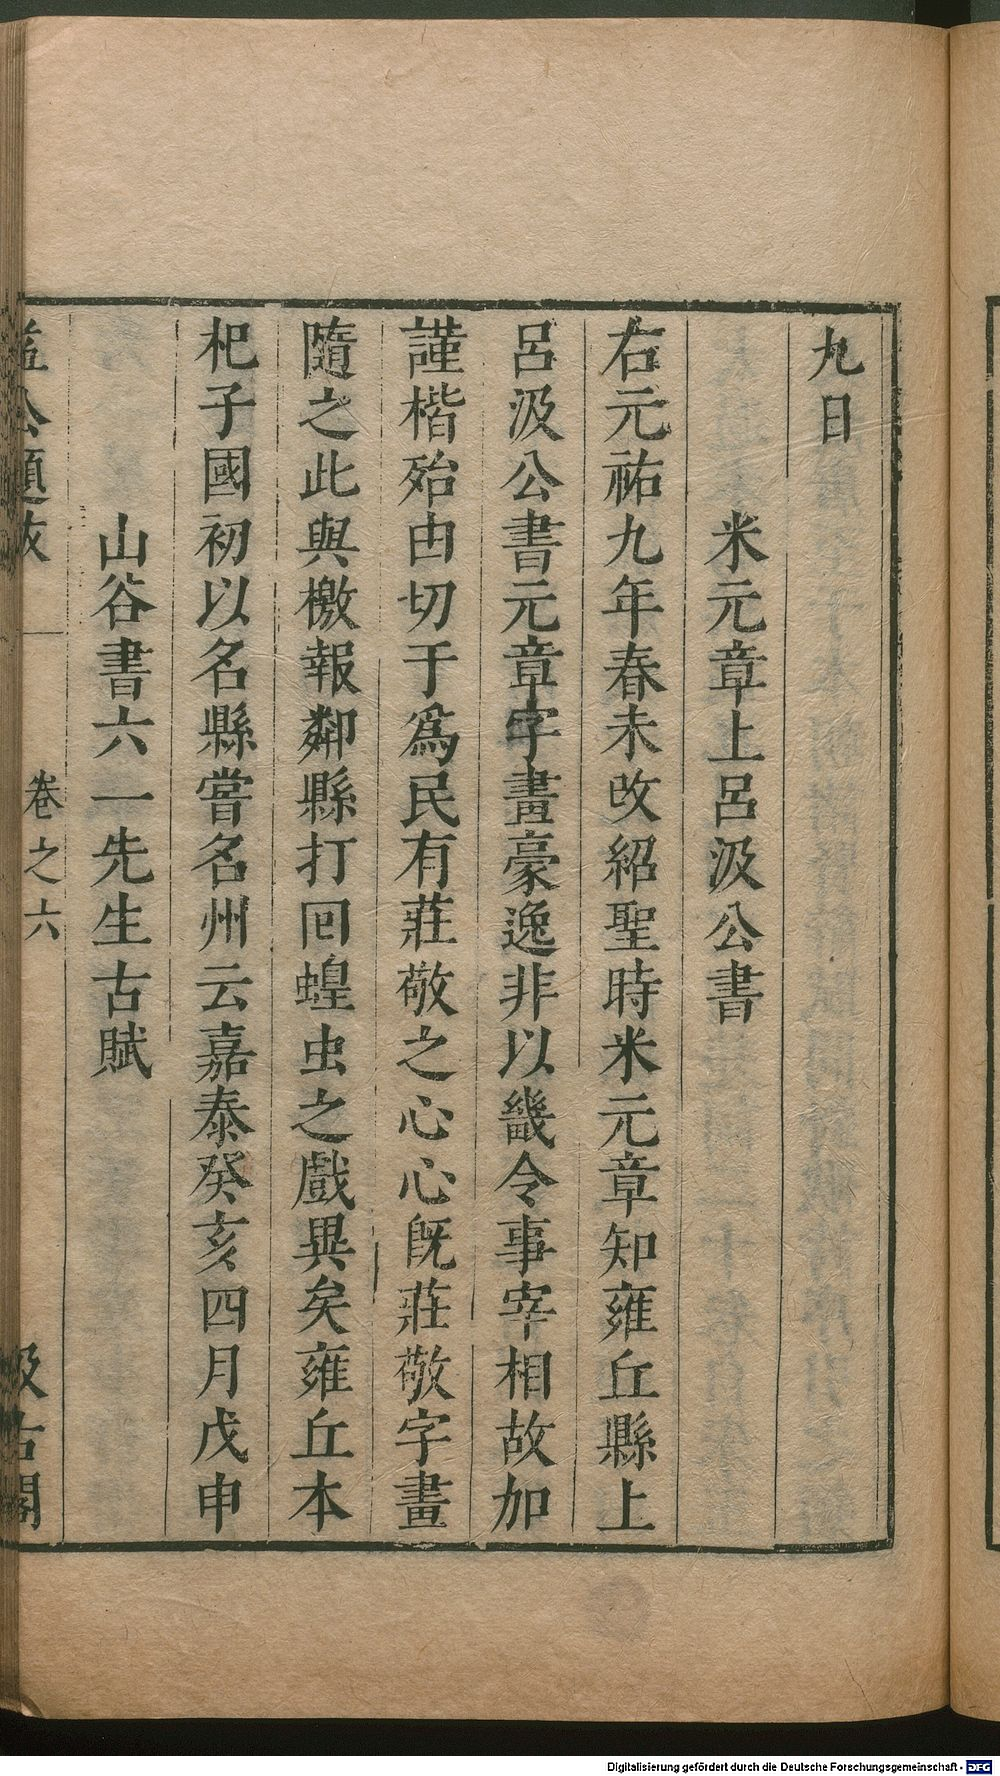 九日
米元章上呂汲公書
右元祐九年春未改紹聖時米元章知雍丘縣上
呂汲公書元章字畫豪逸非以畿令事宰相故加
謹楷殆由切于爲民有莊敬之心心旣莊敬字畫
隨之此與檄報鄰縣打回蝗虫之戲異矣雍丘本
杞子國初以名縣嘗名州云嘉泰癸亥四月戊申
山谷書六一先生古賦
益公題跋 一 卷之六 汲古閣
Digitalisierung gefördert durch die Deutsche Forschungsgemeinschaft - DFG